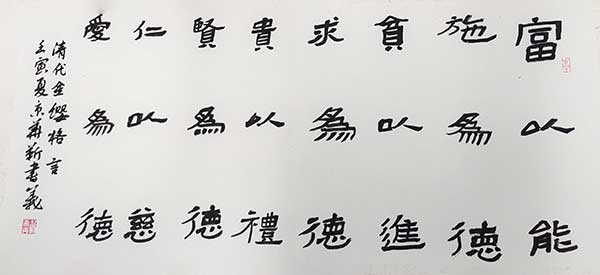 富以能
施為德
貧以進
求為德
貴以禮
賢為德
仁以慈
愛為德
清代金纓格言
壬寅夏京華靳書義